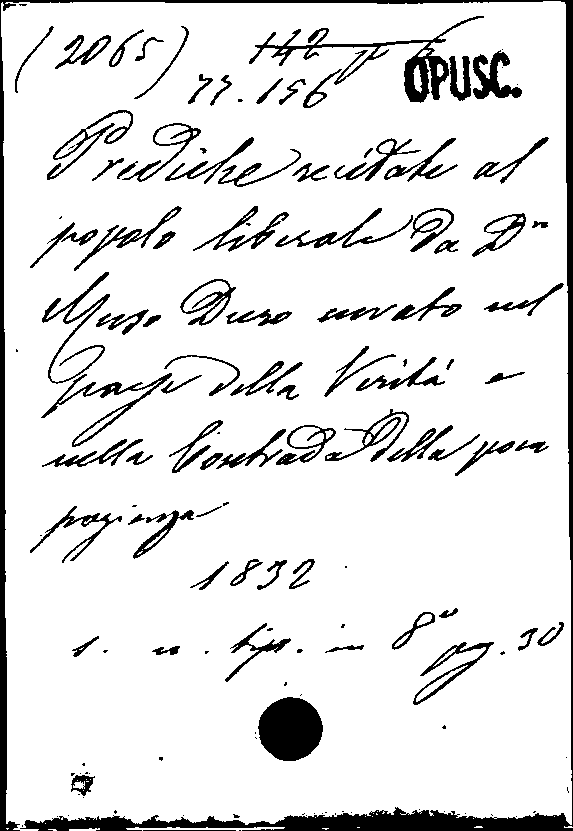 (2065) 142
77.156 OPUSC.
Prediche recitate al
popolo liberale da Dn
Muso Duro curato nel
paese della Verità e
nella Contrada della poca
pazienza
1832
s. n. tip. in 8° pg. 30